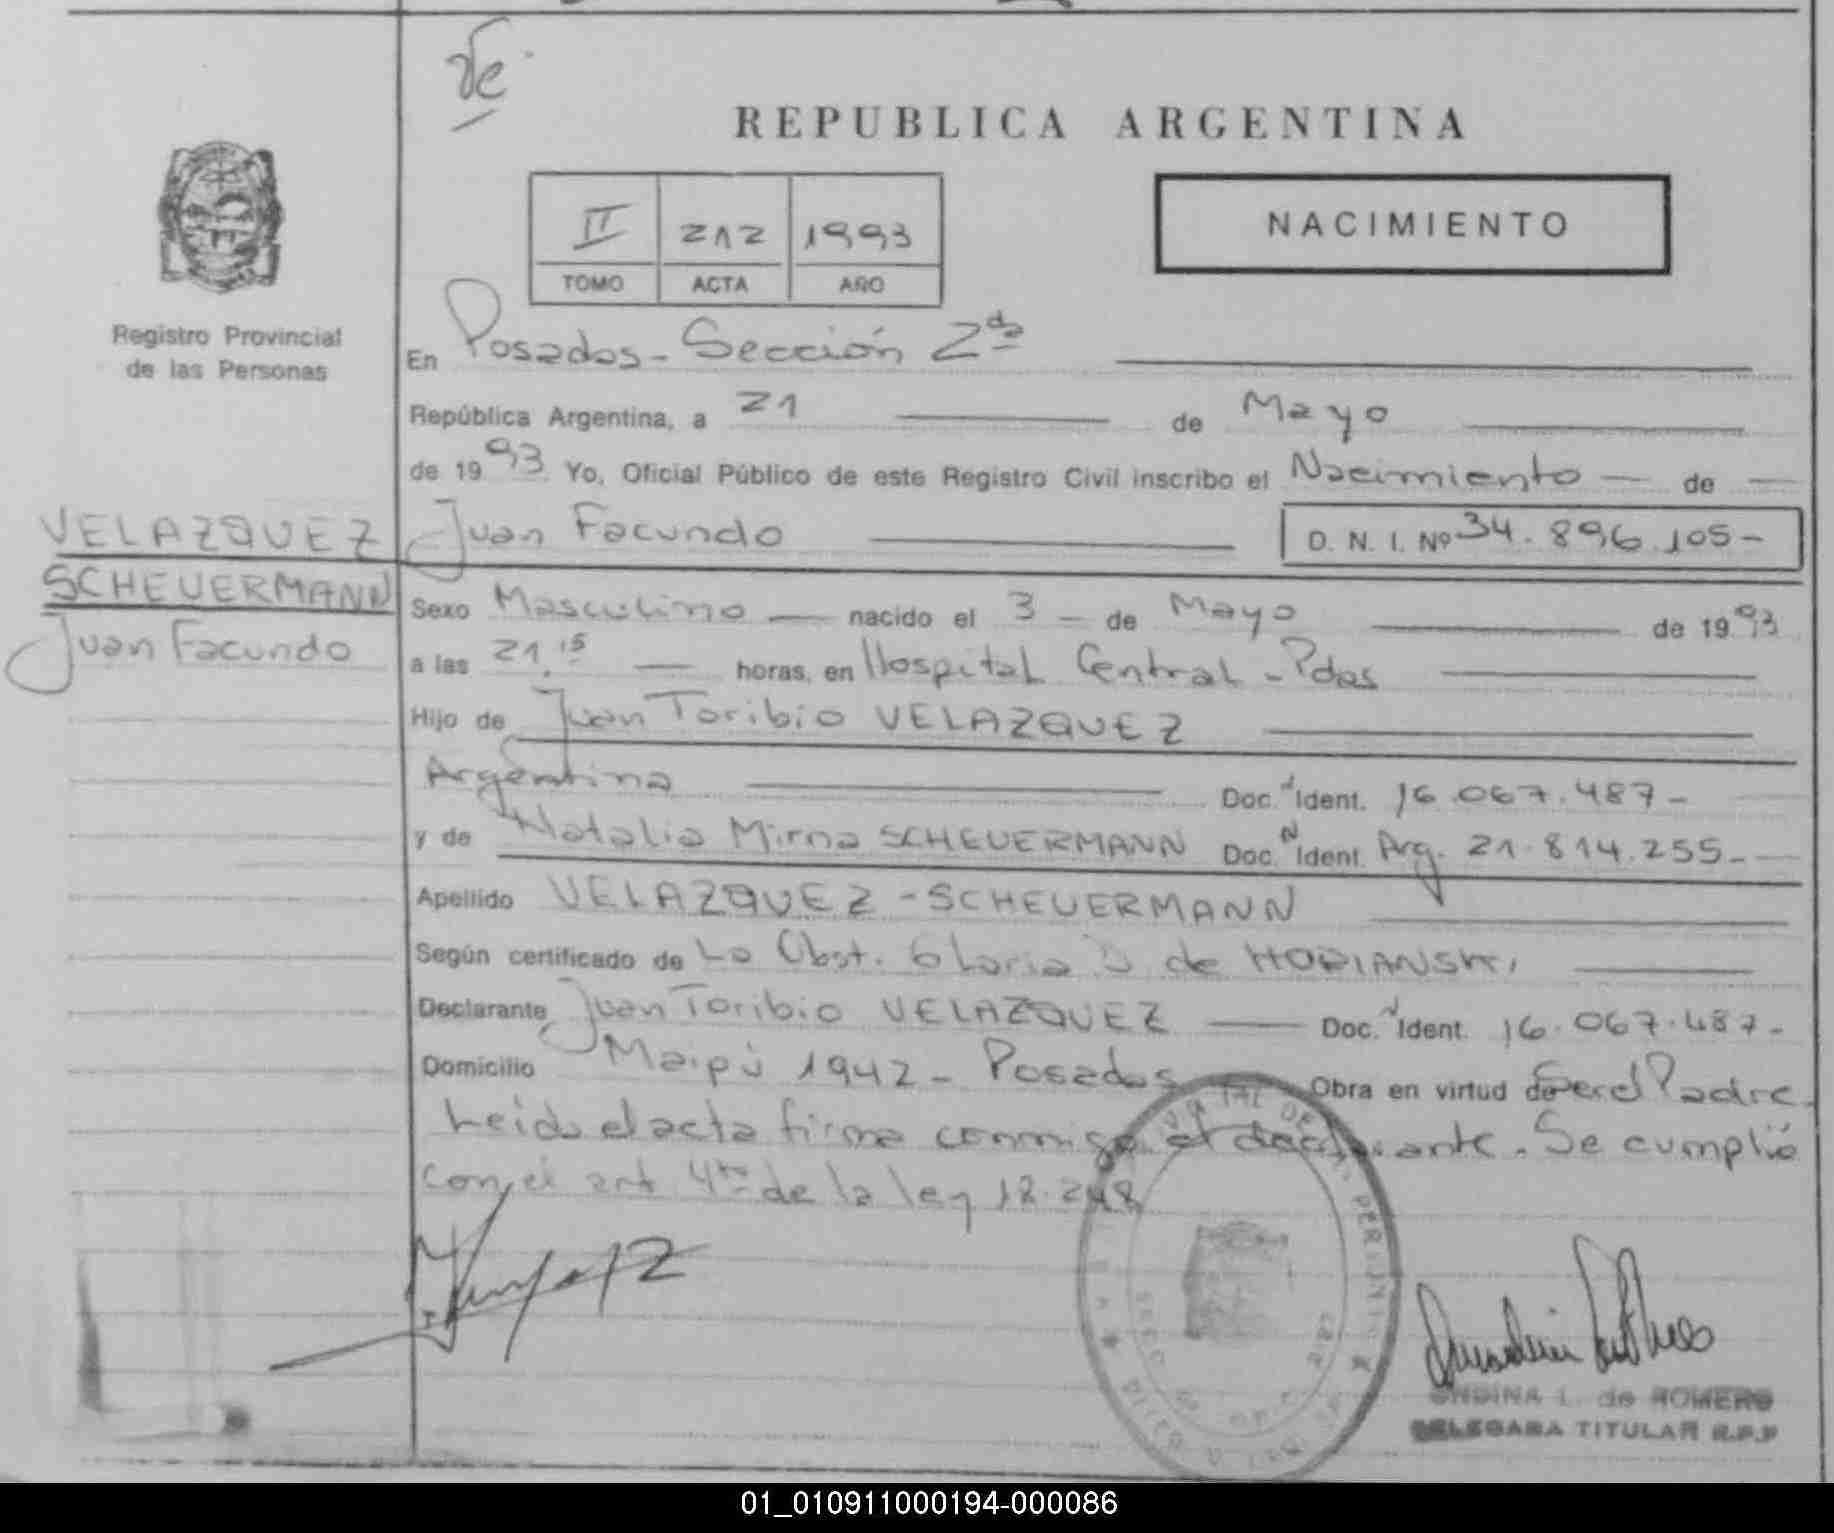 REPUBLICA ARGENTINA
II 212 1993
TOMO ACTA AÑO
NACIMIENTO
Registro Provincial
de las Personas
En Posadas - Sección 2da
República Argentina, a 21 de Mayo
de 1993 Yo, Oficial Público de este Registro Civil inscribo el Nacimiento de
VELAZQUEZ
SCHEUERMANN
Juan Facundo
Juan Facundo D. N. I. Nº 34.896.105-
Sexo Masculino nacido el 3 de Mayo de 1993
a las 21.15 horas, en Hospital Central - Pdas
Hijo de Juan Toribio VELAZQUEZ
Argentina Doc. N Ident. 16.067.487-
y de Natalia Mirna SCHEUERMANN Doc. N Ident. Arg. 21.814.255-
Apellido VELAZQUEZ - SCHEUERMANN
Según certificado de La Obst. Gloria de
Declarante Juan Toribio VELAZQUEZ Doc. N Ident. 16.067.487-
Domicilio Maipú 1942 - Posadas Obra en virtud de Ser el Padre.
Leída el acta firma conmigo el declarante. Se cumplió
con el art 4to de la ley 18.248
ONDINA L. de ROMERO
DELEGADA TITULAR R.P.P
01_010911000194-000086